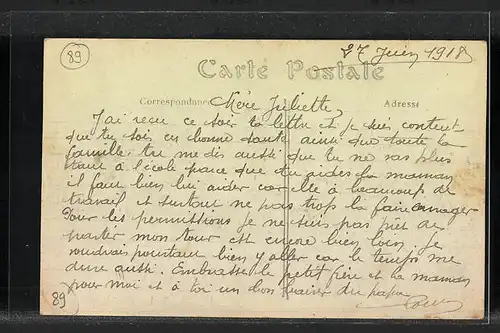 89
27 Juin 1918
Carte Postale
Correspondance Adresse
Chère Juliette,
J'ai reçu ce soir ta lettre et je suis content
que tu sois en bonne santé ainsi que toute la
famille. tu me dis aussi que tu ne vas plus
à l'école parce que tu aides ta maman
il faut bien lui aider car elle a beaucoup de
travail et surtout ne pas trop la faire enrager
Pour les permissions je ne suis pas près de
partir mon tour est encore bien loin. Je
voudrais pourtant bien y aller car le temps me
dure aussi. Embrasse le petit frère et la maman
pour moi et à toi un bon baiser du papa
89